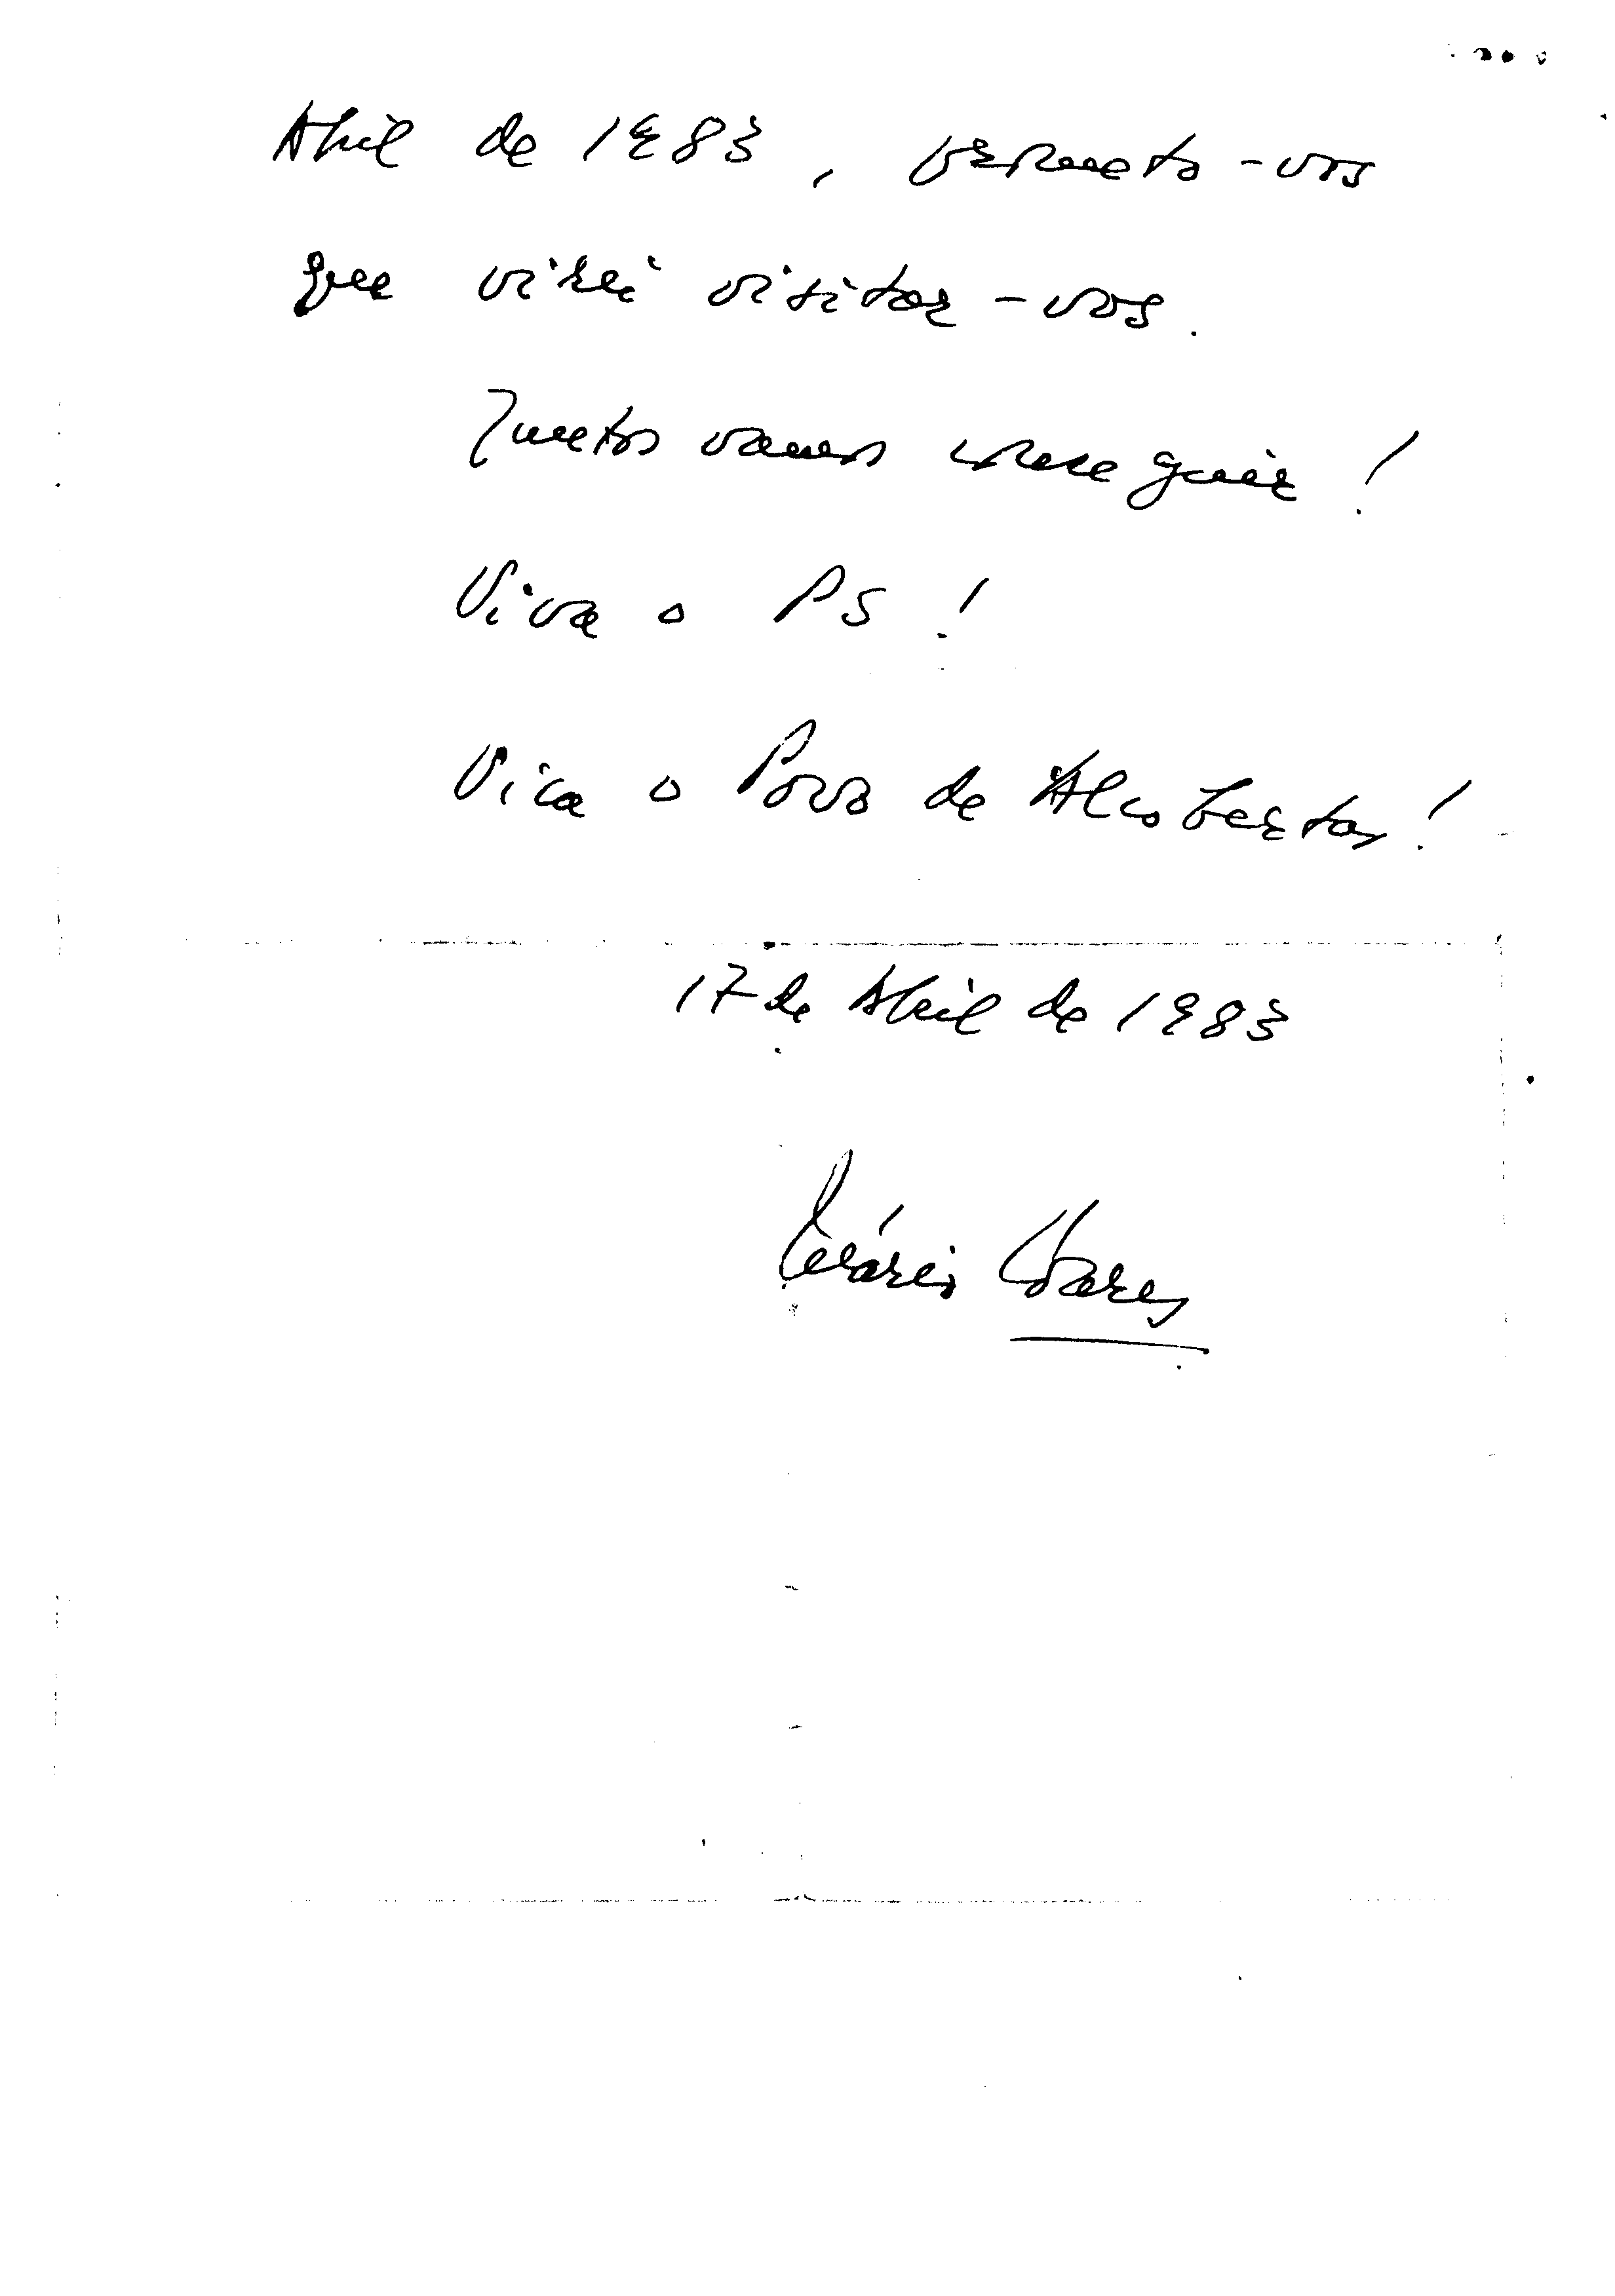 Abril de 1983, prometo-vos
que virei visitar-vos.
Juntos vamos conseguir!
Viva o PS!
Viva o Povo de Alcobertas!
17 de Abril de 1983
Mário Soares